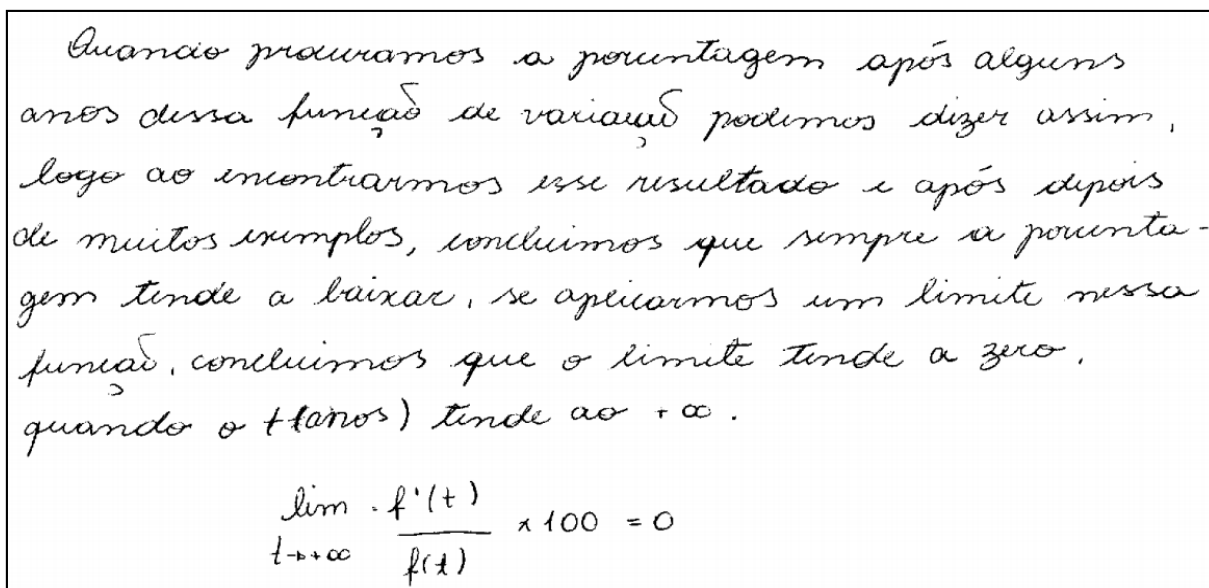 Quando procuramos a porcentagem após alguns
anos dessa função de variação podemos dizer assim,
logo ao encontrarmos esse resultado e após depois
de muitos exemplos, concluimos que sempre a porcenta-
gem tende a baixar, se aplicarmos um limite nessa
função, concluimos que o limite tende a zero,
quando o t(anos) tende ao +∞.
lim f'(t)/f(t) × 100 = 0
t→+∞